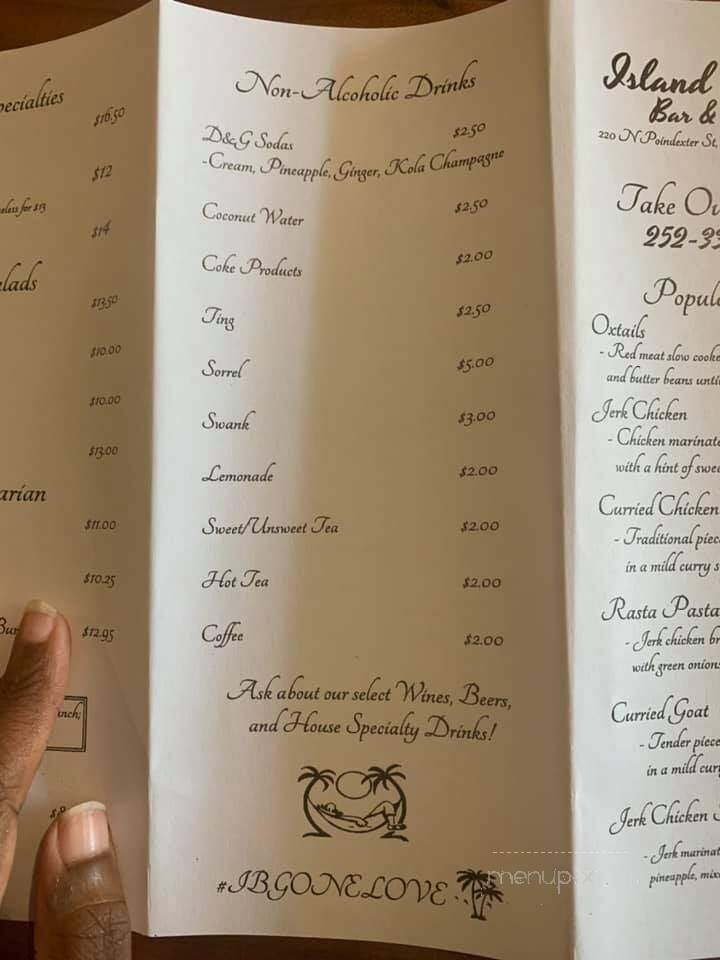 $16.50
$12
for $13
$14
$13.50
$10.00
$10.00
$13.00
$11.00
$10.25
$12.95
Non-Alcoholic Drinks
D&G Sodas $2.50
-Cream, Pineapple, Ginger, Kola Champagne
Coconut Water $2.50
Coke Products $2.00
Ting $2.50
Sorrel $5.00
Swank $3.00
Lemonade $2.00
Sweet/Unsweet Tea $2.00
Hot Tea $2.00
Coffee $2.00
Ask about our select Wines, Beers,
and House Specialty Drinks!
#IBGONELOVE
menupix
Island
Bar &
220 N Poindexter St,
Take
252-33
Oxtails
- Red meat slow
and butter beans
Jerk Chicken
- Chicken
with a hint of
Curried Chicken
- Traditional
in a mild curry
Rasta Pasta
- Jerk chicken
with green onions
Curried Goat
- Tender
in a mild
Jerk Chicken
- Jerk
pineapple,